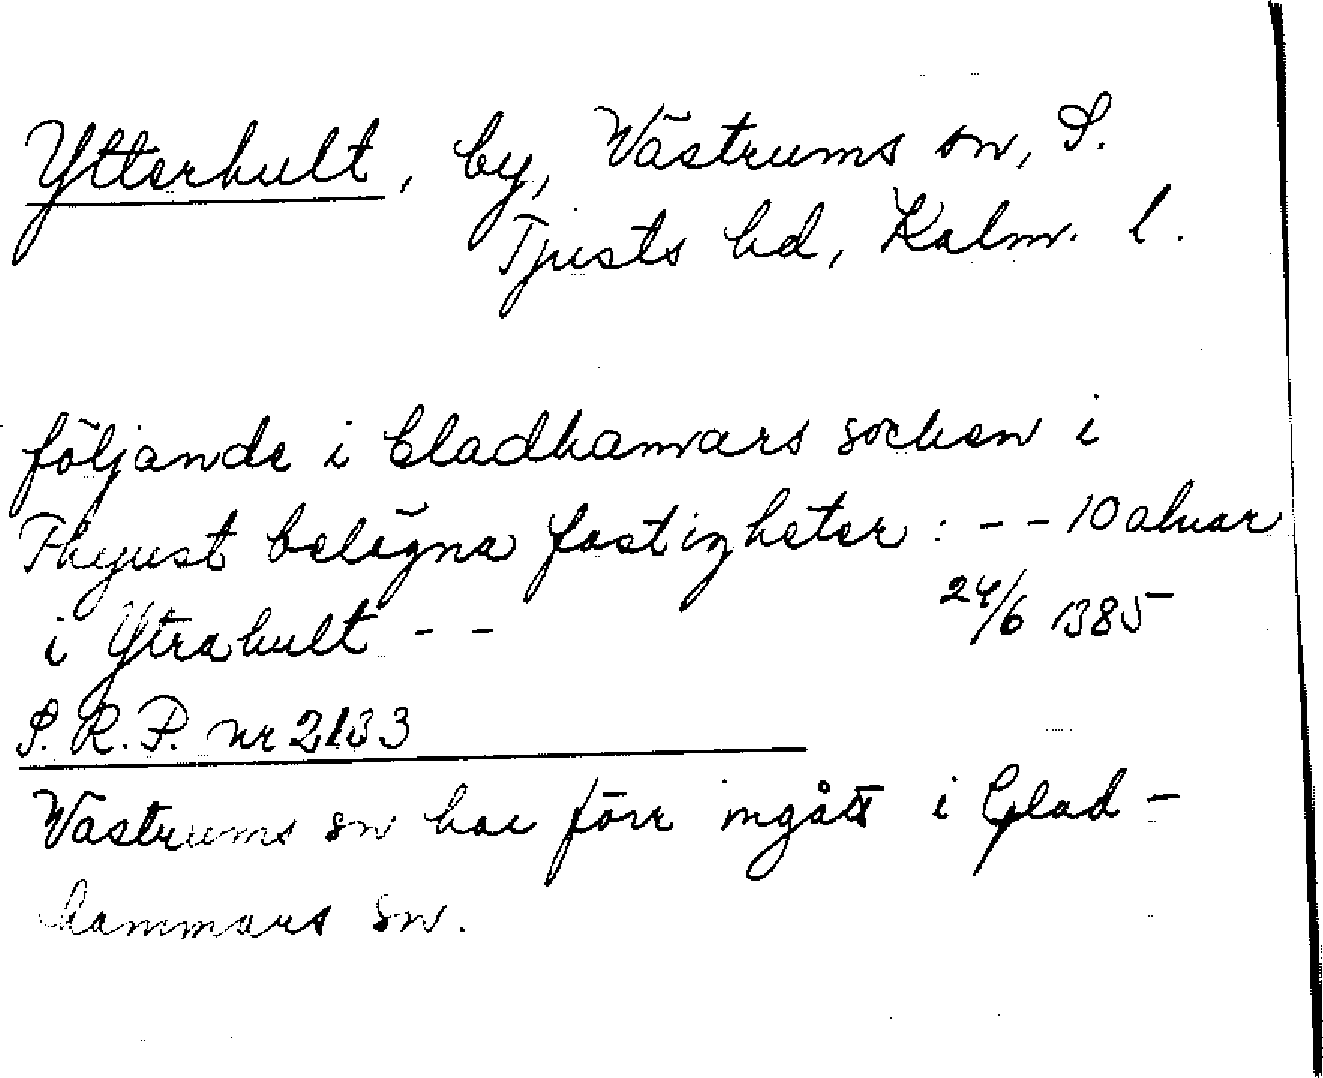 Ytterhult, by, Västrums sn, S.
Tjusts hd, Kalm. l.
följande i Gladhamars socken i
Thyust belägna fastigheter: - - 10 alnar
i Ytrahult - - 24/6 1385
S. R. P. nr 2133
Västrums sn har förr ingått i Glad-
hammars sn.